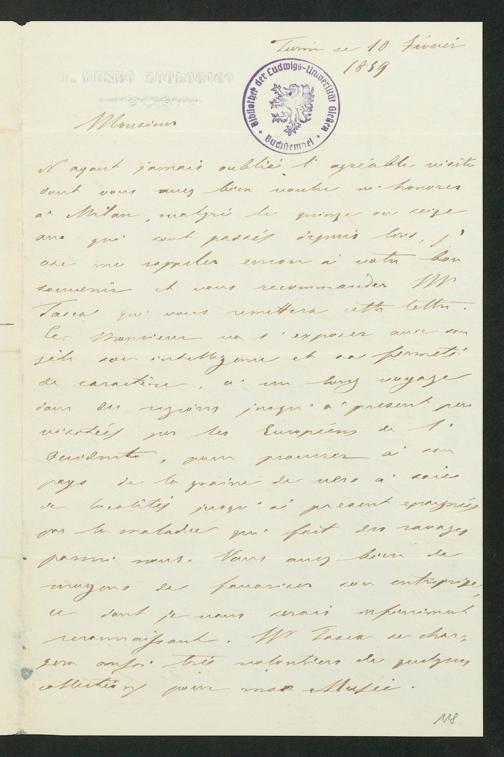 Turin ce 10 Février
1859
Bibliothek der Ludwigs-Universität Giessen
Buchstempel
Monsieur
N'ayant jamais oublié l'agréable visite
dont vous avez bien voulu m'honorer
à Milan, malgré les quinze ou seize
ans qui sont passés depuis lors, j'
ose me rappeler encore à votre bon
souvenir et vous recommander Mr
Tasca qui vous remettera cette lettre.
Ce Monsieur va s'exposer avec son
zèle son intelligence et sa fermeté
de caractère, à un long voyage
dans des régions jusqu'à présent peu
visitées par les Européens de l'
Occidente, pour procurer à son
pays de la graine de vers à soie
de localités jusqu'à present epargnées
par la maladie qui fait des ravages
parmi nous. Vous avez bien de
moyens de favoriser son entreprise,
ce dont je vous serais infiniment
reconnaissant. Mr Tasca se char-
gera aussi très volontiers de quelques
collections pour mon Musée.
118